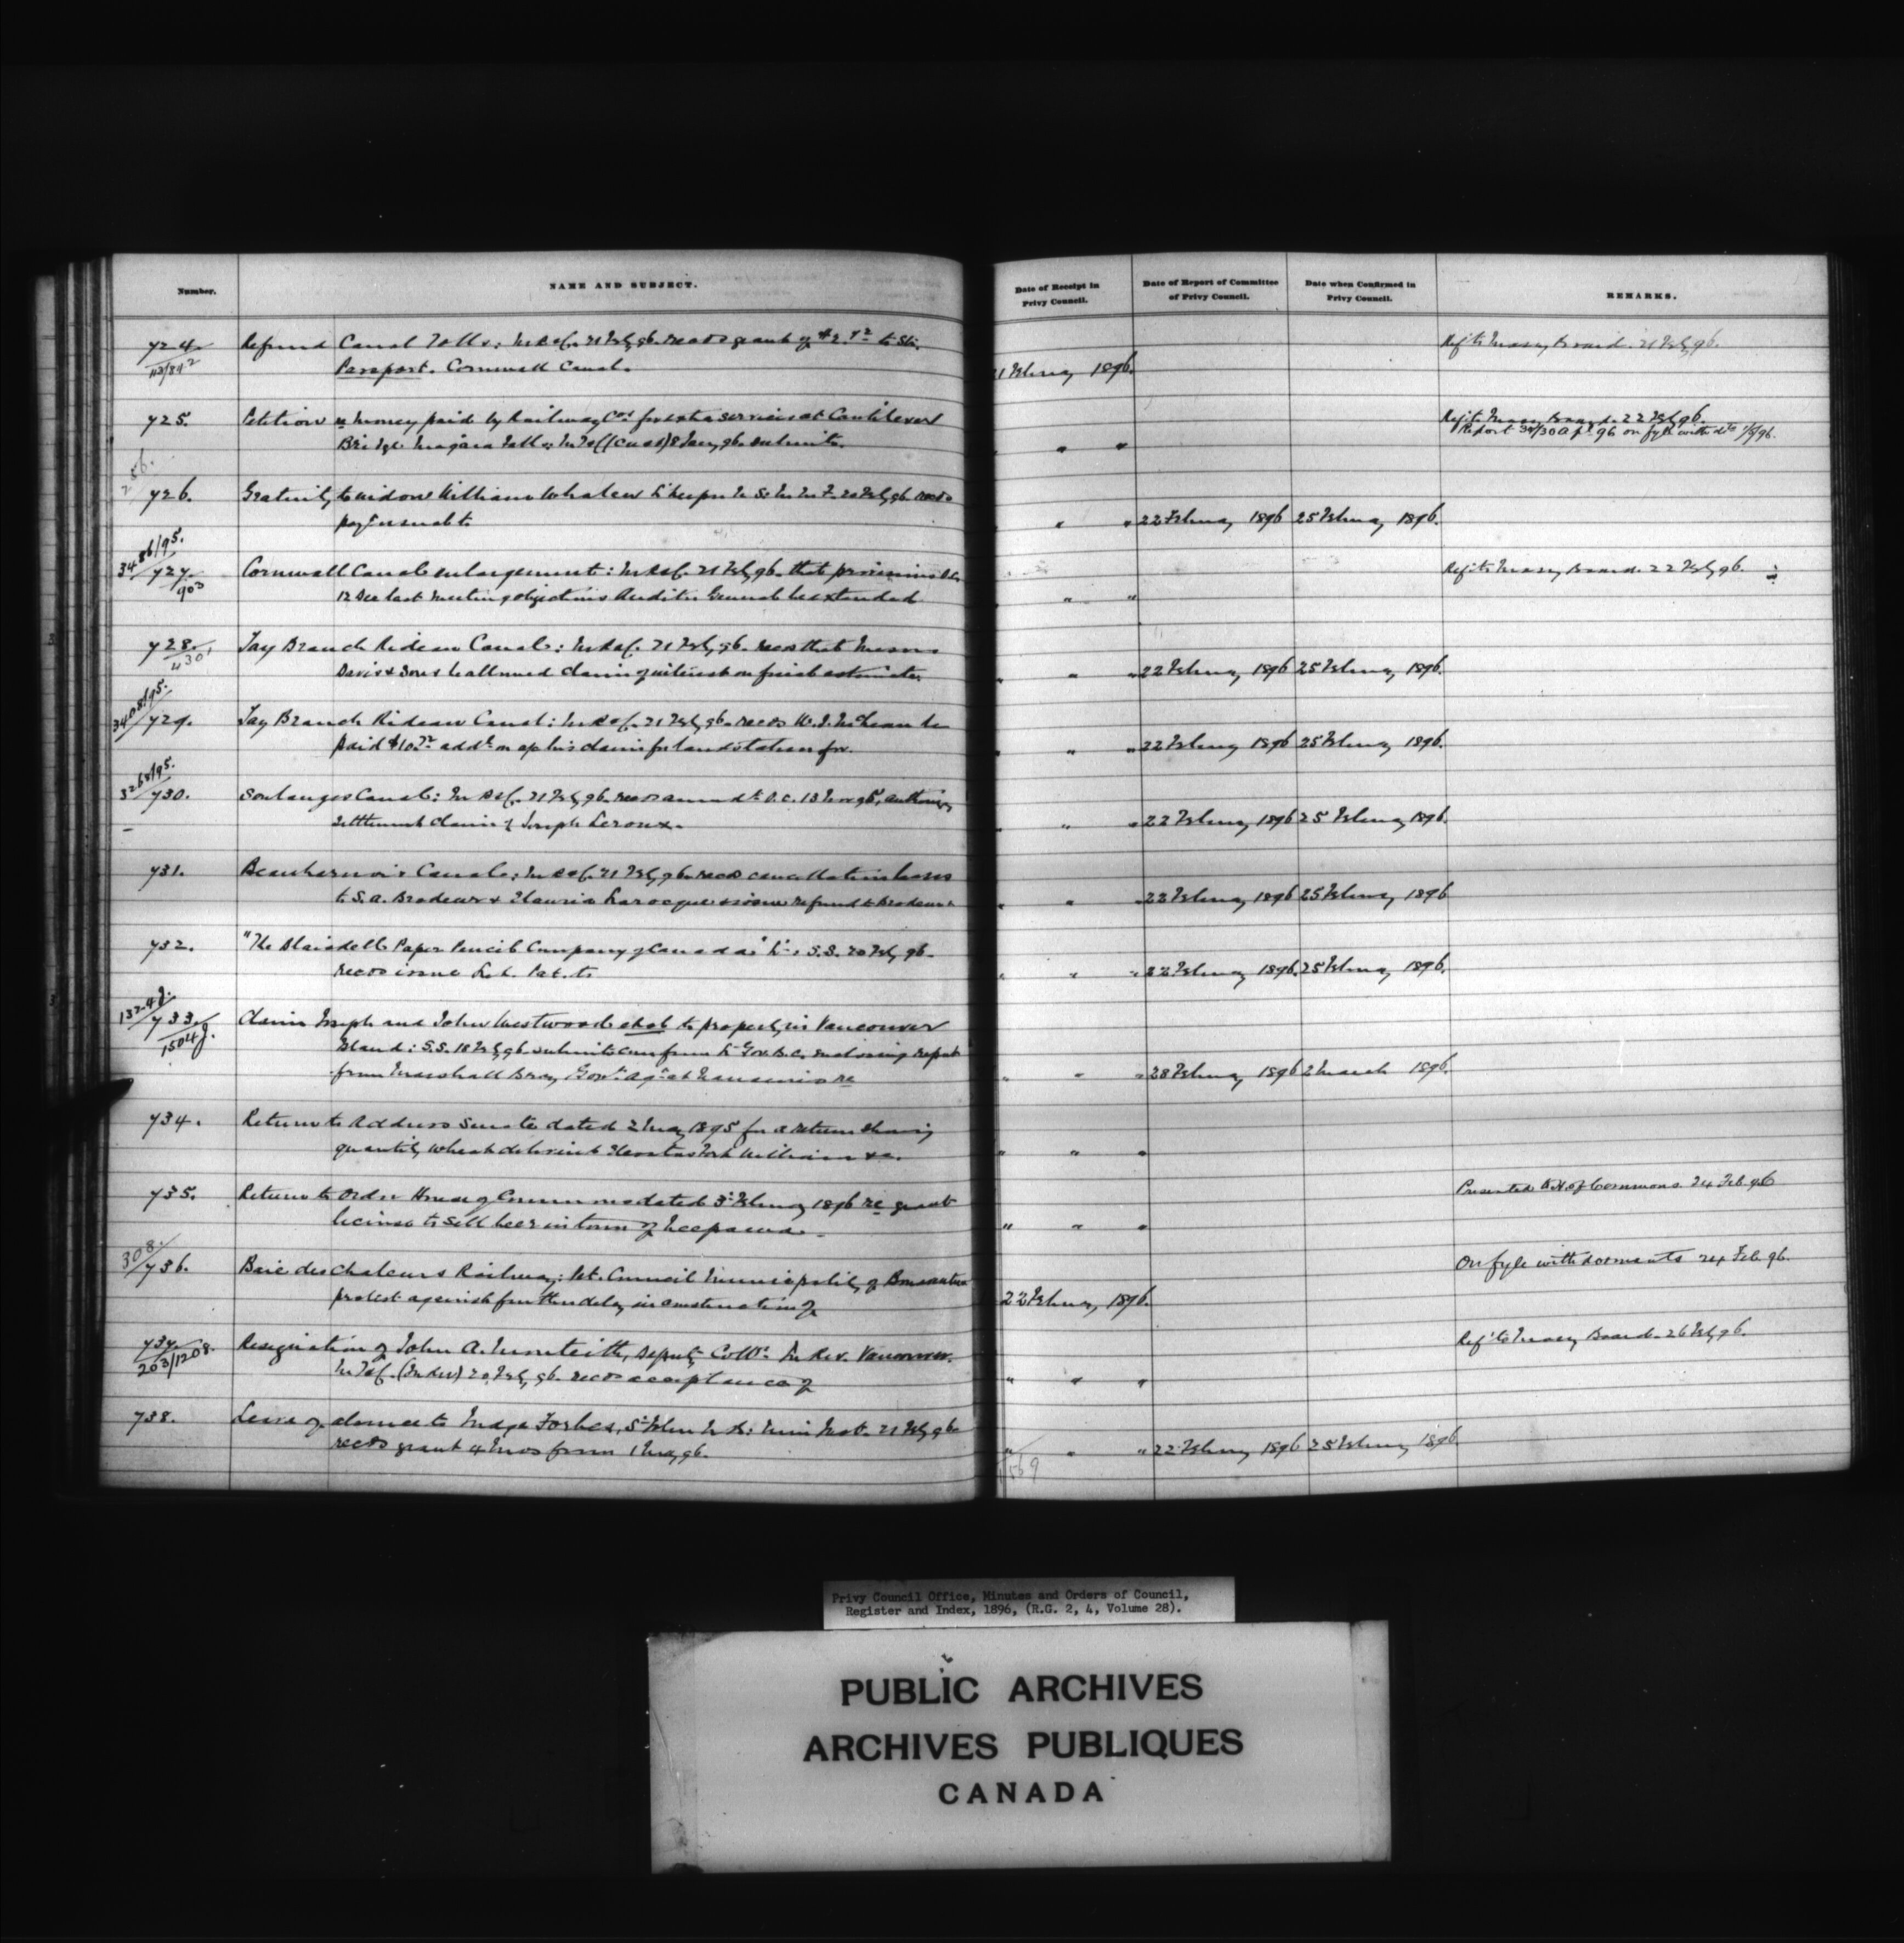 Number.
NAME AND SUBJECT.
Date of Receipt in
Privy Council.
Date of Report of Committee
of Privy Council.
Date when Confirmed in
Privy Council.
REMARKS.
724
Refund Canal Tolls: 21 Feby 96. recds grant of $2 to Str.
Ref to Treasy Board. 21 Feby 96.
Passport. Cornwall Canal.
21 February 1896.
725.
Petition re money paid by Railway Cos for extra services at Cantilever
Ref to Treasy Board. 22 Feby 96.
Report 30 Apl 96 on fyle with
Bridge Niagara Falls: (Customs) 8 Jany 96. submits.
" "
256.
726.
Gratuity to widow William Whalen 20 Feby 96 recds
payment to
" " 22 February 1896 25 February 1896.
3486/95.
727.
903
Cornwall Canal enlargement: 21 Feby 96. that provisions
Ref to Treasy Board. 22 Feby 96.
12 Dec last meeting objections Auditor General be extended
" "
728.
4301
Tay Branch Rideau Canal: 21 Feby 96. recds that Messrs
Davis & Sons be allowed claim of interest on final estimate.
" " 22 February 1896 25 February 1896.
3408/95.
729.
Tay Branch Rideau Canal: 21 Feby 96. recds W. J. McLean be
paid $10 addl on a/c his claim for land taken for.
" " 22 February 1896 25 February 1896.
3268/95.
730.
Soulanges Canal: 21 Feby 96. recds amendt O.C. 13 Nov 95, authorizing
settlement claim of Joseph Leroux.
" " 22 February 1896 25 February 1896.
731.
Beauharnois Canal: 21 Feby 96. recds cancellation leases
to S. A. Brodeur & Larocque & issue refund to Brodeur.
" " 22 February 1896 25 February 1896
732.
"The Blaisdell Paper Pencil Company of Canada" S.S. 20 Feby 96.
recds issue Let. Pat. to
" " 22 February 1896. 25 February 1896.
1324g.
733g.
1504g.
Claim Joseph and John Westwood et al to property in Vancouver
Island: S.S. 18 Feby 96 submits from Lt Gov. B.C. enclosing report
from Marshall Bray, Govt. Agt at Nanaimo re
" " 28 February 1896 2 March 1896.
734.
Return to Address Senate dated 2 May 1895 for a return showing
quantity wheat delivered Elevators Fort William &c.
" "
735.
Return to Order House of Commons dated 3 February 1896 re grant
Presented to H. of Commons. 24 Feb. 96
license to sell beer in town of Neepawa.
" "
308.
736.
Baie des Chaleurs Railway: Council Municipality of Bonaventure
On fyle with dormants 24 Feb. 96.
protest against further delay in construction of
22 February 1896.
737.
203/1208.
Resignation of John A. Monteith, Deputy Collr. In. Rev. Vancouver.
Ref to Treasy Board. 26 Feby 96.
(In Rev) 20 Feby 96. recds acceptance of
" "
738.
Leave of absence to Judge Forbes, St John N.B: Min Just. 21 Feby 96
recds grant 4 mos from 1 May 96.
" " 22 February 1896 25 February 1896.
569
Privy Council Office, Minutes and Orders of Council,
Register and Index, 1896, (R.G. 2, 4, Volume 28).
PUBLIC ARCHIVES
ARCHIVES PUBLIQUES
CANADA